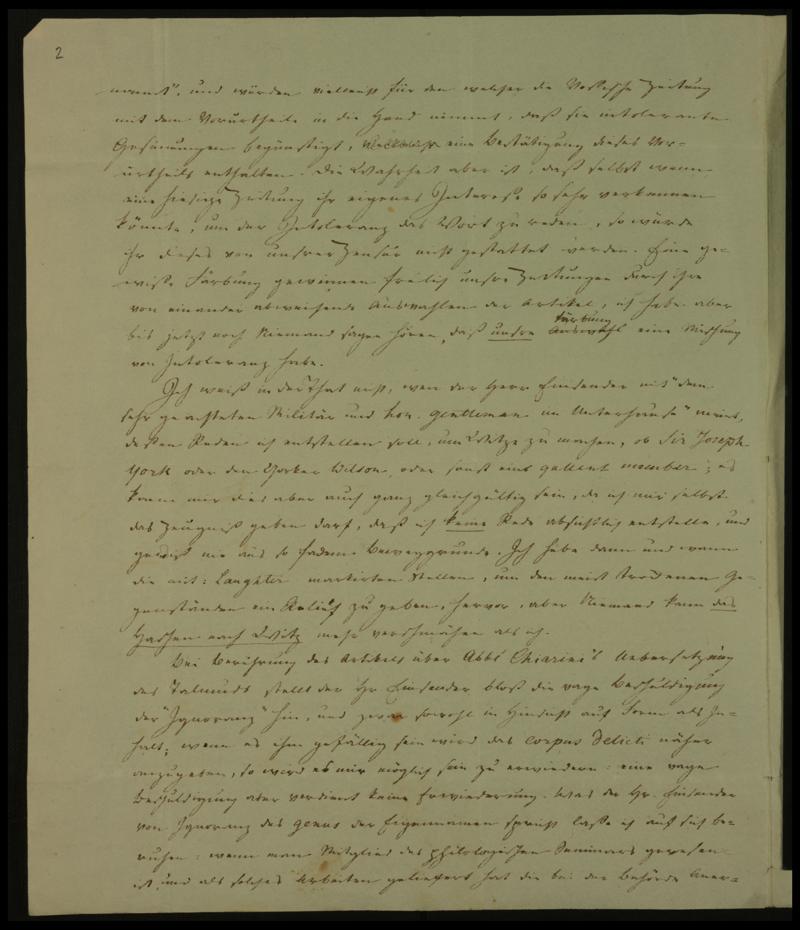 2
nennt", und würden vielleicht für den welcher die Vossische Zeitung
mit dem Vorurtheile in die Hand nimmt, daß sie intolerante
Gesinnungen begünstigt, eine Bestätigung dieses Vor-
urtheils enthalten. Die Wahrheit aber ist, daß selbst wenn
eine hiesige Zeitung ihr eigenes Interesse so sehr verkennen
könnte, um der Intoleranz das Wort zu reden, so würde
ihr dieses von unsrer Zensur nicht gestattet werden. Eine ge-
wisse Färbung gewinnen freilich unsre Zeitungen durch ihre
von einander abweichende Auswahlen der Artikel, ich habe aber
bis jetzt noch Niemand sagen hören, daß unsre Färbung eine Mischung
von Intoleranz habe.
Ich weiß in der That nicht, wen der Herr Einsender mit "dem
sehr geachteten Militär und hon. gentleman im Unterhause" meint,
dessen Reden ich entstellen soll, um Witze zu machen, ob Sir Joseph
York oder den Yorker Wilson, oder sonst ein gallant member; es
kann mir dies aber auch ganz gleichgültig sein, da ich mir selbst
das Zeugniß geben darf, daß ich keine Rede absichtlich entstelle, und
gewiß nie aus so fadem Beweggrunde. Ich hebe dann und wann
die mit: Laughter markirten Stellen, um den meist trockenen Ge-
genständen ein Relief zu geben, hervor, aber Niemand kann das
Haschen nach Witz mehr verschmähen als ich.
Bei Berührung des Artikels über Abbé Chiarini's Uebersetzung
des Talmuds stellt der Hr. Einsender bloß die vage Beschuldigung
der "Ignoranz" hin, und zwar sowohl in Hinsicht auf Form als In-
halt; wenn es ihm gefällig sein wird das corpus delicti näher
anzugeben, so wird es mir möglich sein zu erwiedern: eine vage
Beschuldigung aber verdient keine Erwiederung. Was der Hr. Einsender
von Ignoranz des genus der Eigennamen spricht lasse ich auf sich be-
ruhen: wenn man Mitglied des philologischen Seminars gewesen
ist und als solches Arbeiten geliefert hat die bei der Behörde Aner-